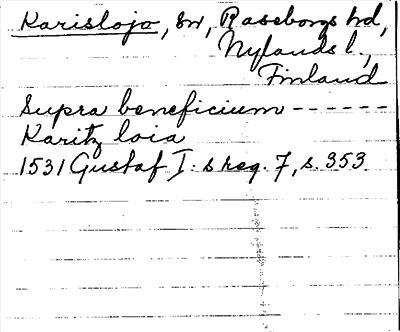 Karislojo, sn, Raseborgs hd,
Nylands l.,
Finland
Supra beneficium ------
Karitz loia
1531 Gustaf I: s reg. 7, s. 353.